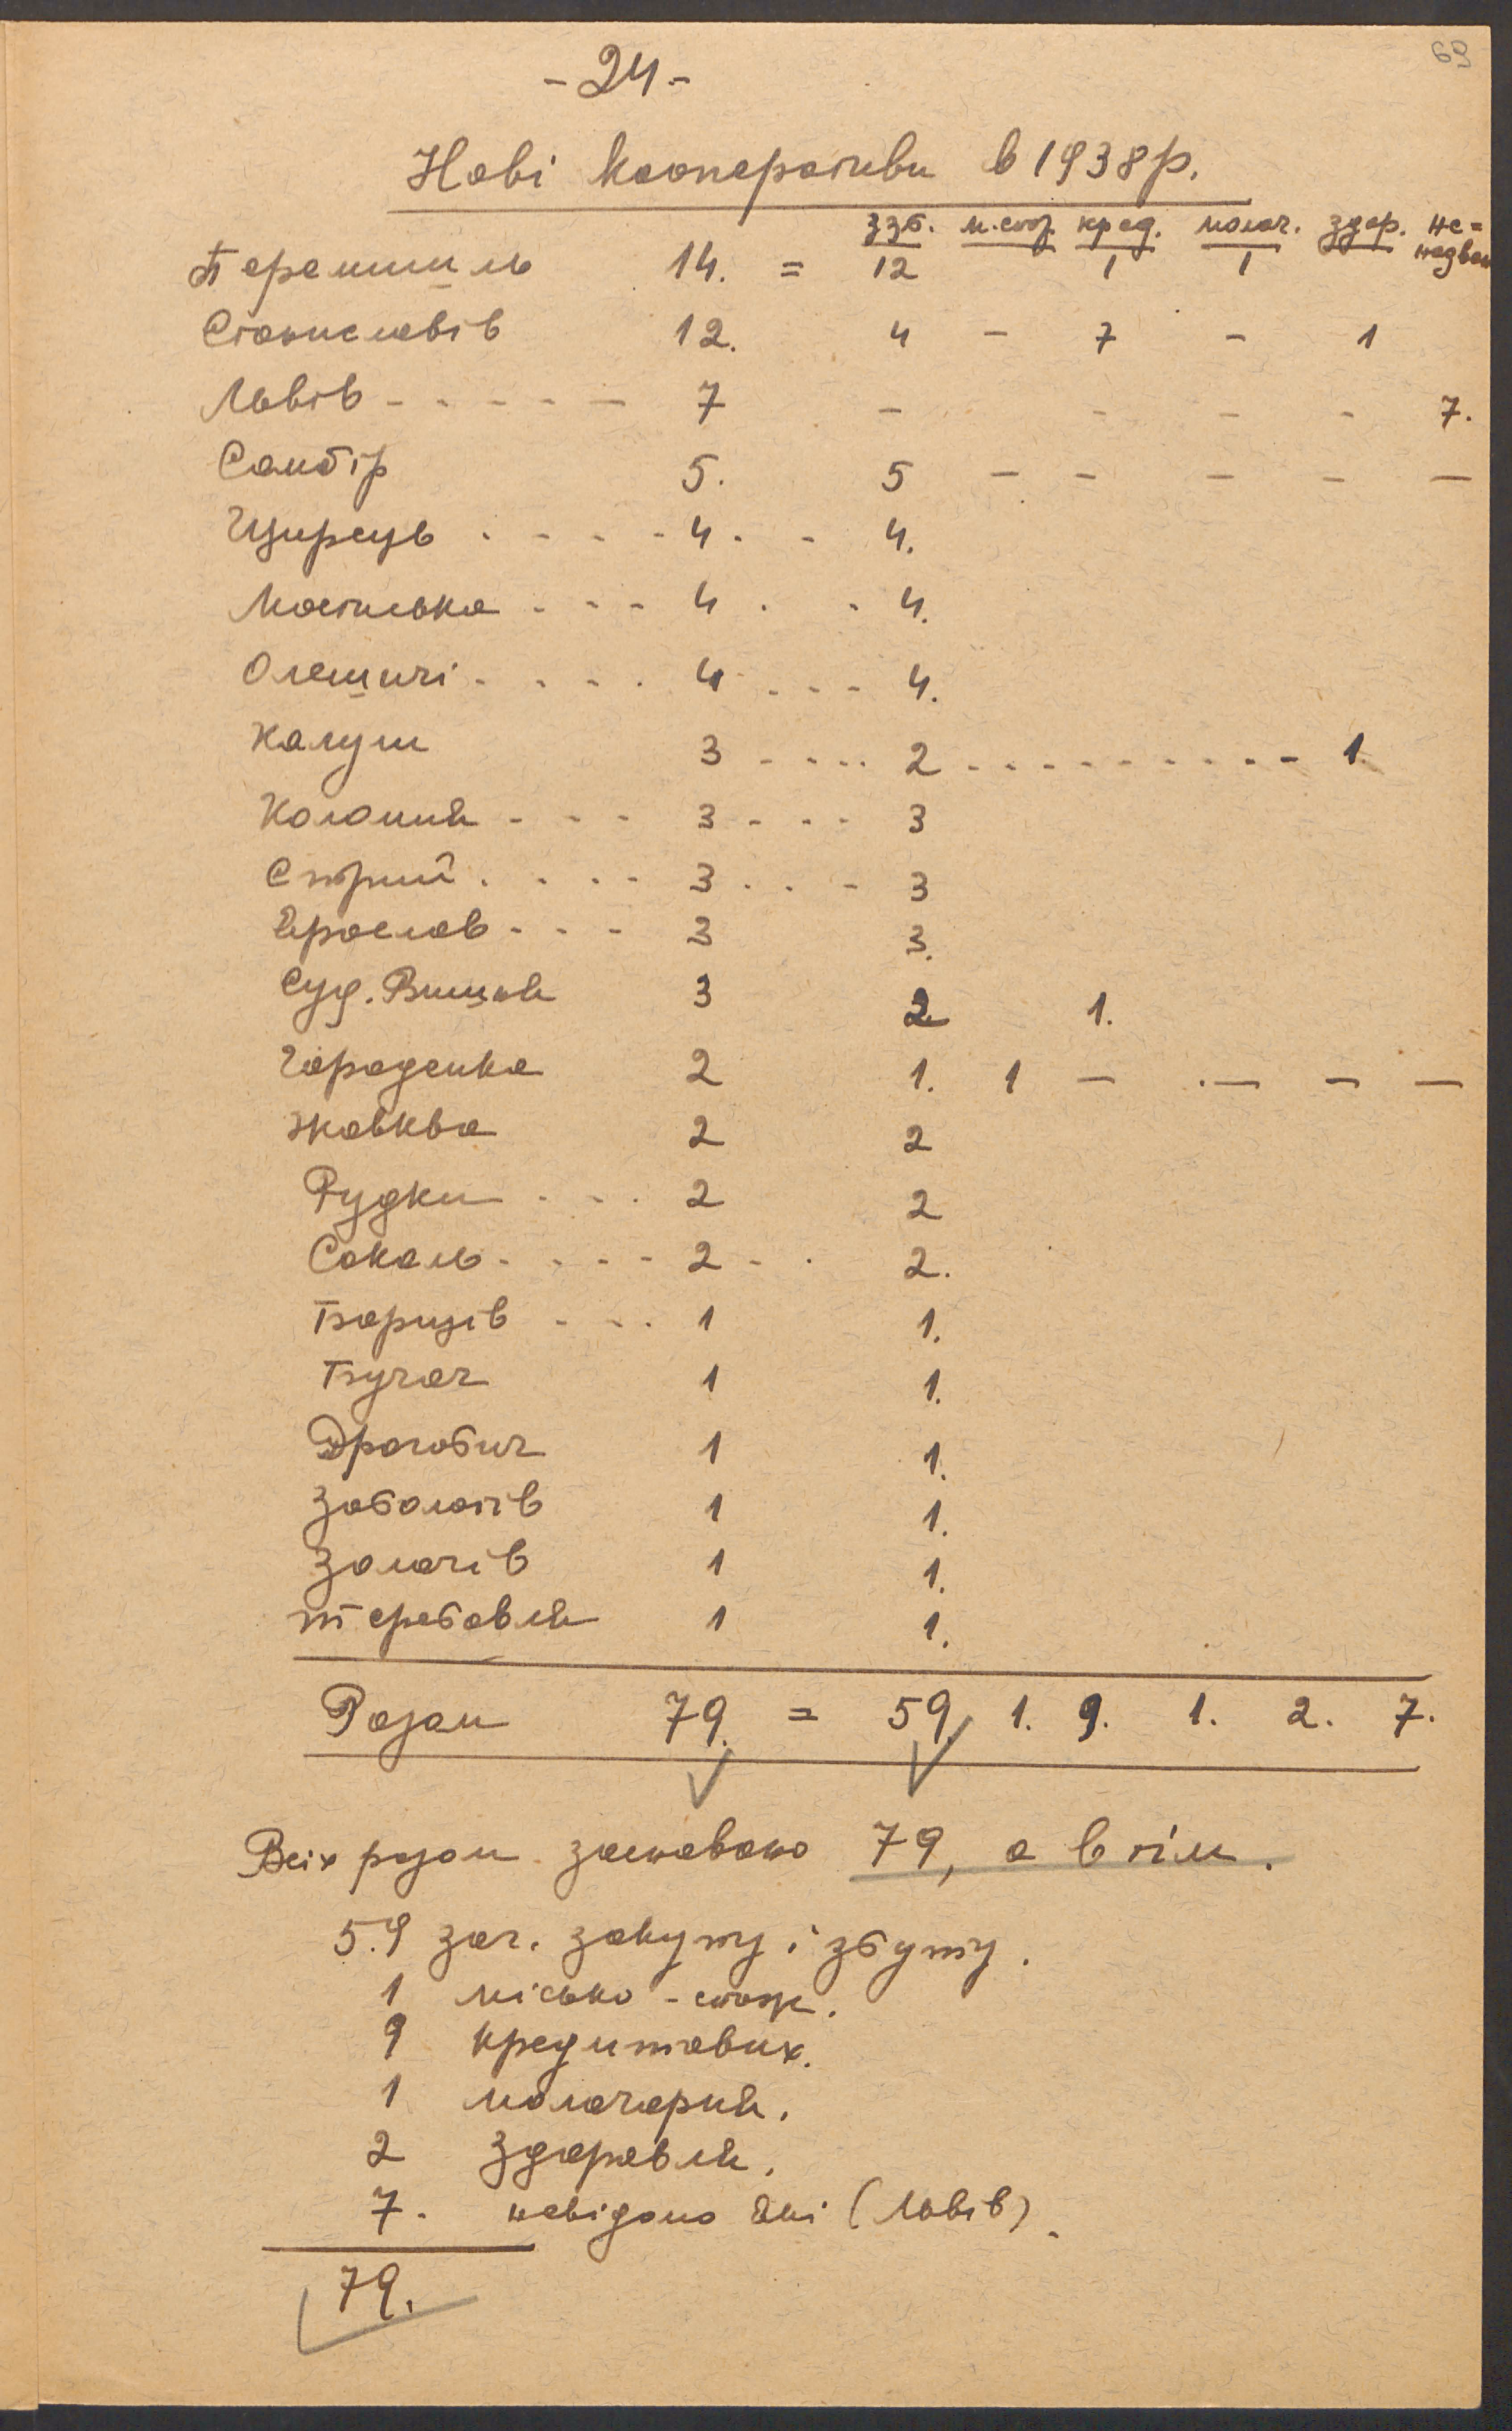 69
- 24 -
Нові кооперативи в 1938 р.
ззб. м.спож. кред. молоч. здор. не=
Перемишль 14. = 12 1 1
Станиславів 12. 4 - 7 - 1
Львів - - - - - - 7 - - - - 7.
Самбір 5. 5 - - - - -
Щирець . - - - - 4 . - 4.
Мостиська . - - - 4 . . 4.
Олешичі - . . . . 4 . - - - 4.
Калуш 3 - - . . 2 - . - - - - - - - - - 1.
Коломия - - - 3 - - - 3
Стрий . . - - 3 . . - 3
Ярослав - - - 3 3.
Суд. Вишня 3 2 1.
Городенка 2 1. 1 - . - - -
Жовква 2 2
Рудки . - . 2 2
Сокаль - . - - - 2 - . 2.
Борщів - - . 1 1.
Бучач 1 1.
Дрогобич 1 1.
Заболотів 1 1.
Золочів 1 1.
Теребовля 1 1.
Разом 79. = 59. 1. 9. 1. 2. 7.
Всіх разом засновано 79, а в тім.
5.9 заг. закупу і збуту.
1 місько - спож.
9 кредитових.
1 молочарня.
2 здоровля.
7. невідомо які (Львів).
79.